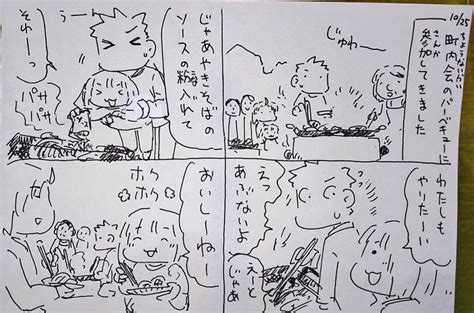 10/25
町内会のバーベキューに
ちょうないかい
参加してきました
さんか
じゅわー
わたしも
やりたーい
えっ
あぶないよ
えーと
じゃあ
じゃあやきそばの
ソースの粉入れて
うーん
それーっ
パサ
パサ
おいしーねー
ホク
ホク